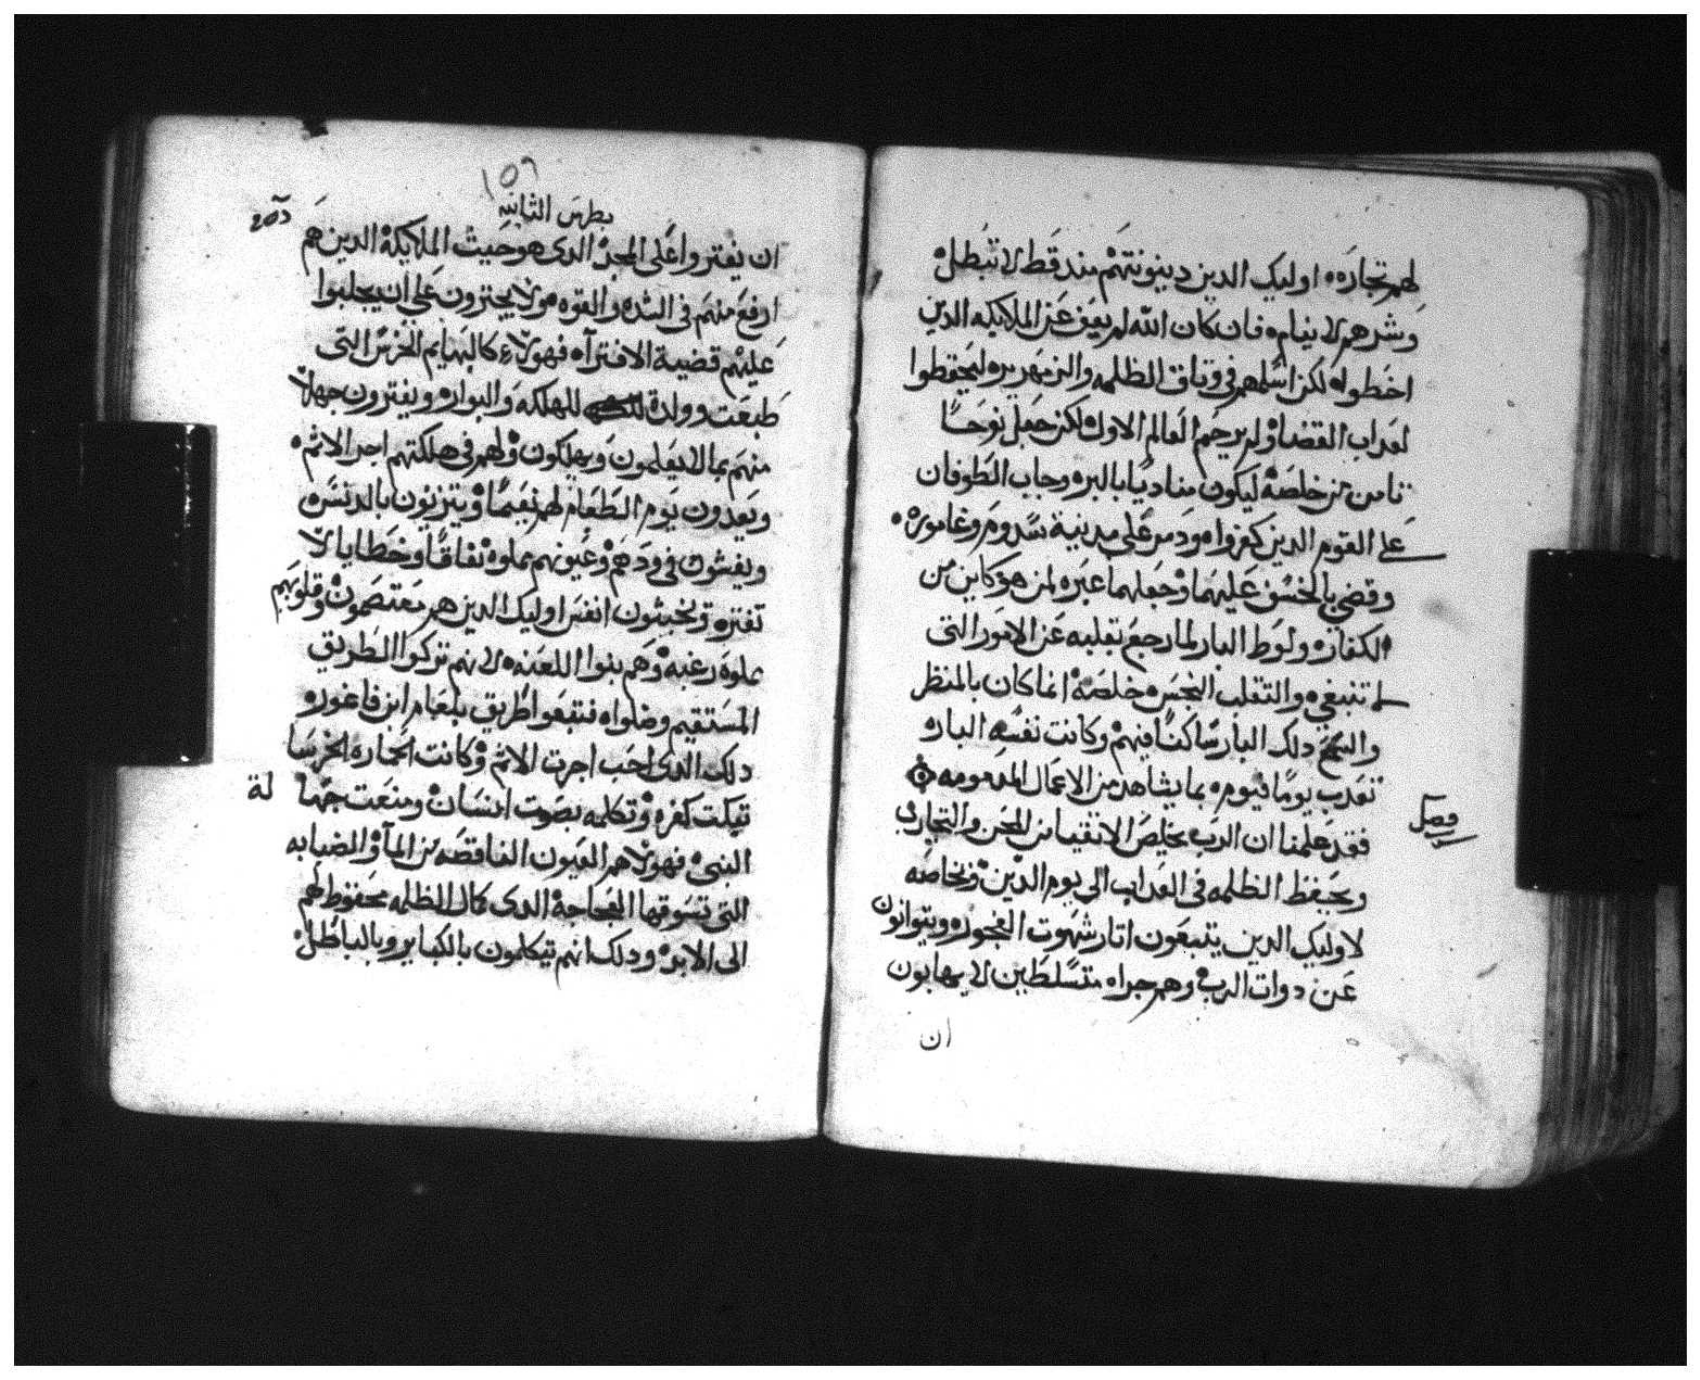 لهم تجاره اوليك الدين دينونتهم مند قط لا تبطل
وشرهم لا ينام فان كان الله لم يعف عن الملايكه الدين
اخطوا لكن اسلمهم في وتاق الظلمه والزمهريره ليحفطوا
لعداب القضا ولم يرحم العالم الاول لكن جعل نوحًا
تامن من خلصه ليكون مناديًا بالبره وجاب الطوفان
على القوم الدين كفروا ودمر على مدينة سدوم وغاموره
وقضي بالخسف عليهما وجعلهما عبره لمن هو كاين من
الكفاره ولوط البار لما رجع بقلبه عن الامور التى
لا تنبغي والتقلب النجس خلصه انما كان بالمنظر
والسمع دلك البار ساكنًا فيهم وكانت نفسه الباره
تعدب يومًا فيوم بما يشاهد من الاعمال المدمومه
فصل
فقد علمنا ان الرب يخلص الاتقيا من المحن والتجارب
ويحفظ الظلمه في العداب الى يوم الدين وبخاصه
لاوليك الدين يتبعون اتار شهوت الفجوره ويتوانون
عن دوات الرب وهم جراه متسلطين لا يهابون
ان
١٥٦
بطرس الثانيه
ان يفتروا على المجد الدى هو حيث الملايكة الدين هم
ارفع منهم فى الشده والقوه ولا يجترون على ان يجلبوا
عليهم قضية الافترآ فهولاء كالبهايم الخرس التى
طبعت وولدة للهلكه والبواره ويفترون جهلاً
منهم بما لا يعلمون ويهلكون ولهم في هلكتهم اجر الاثم
ويعدون يوم الطعام لهم نعيمًا ويتزيون بالدنسه
ويفيشون في ودهم وعيونهم مملوه نفاقًا وخطايا لا
تفتره ويخبثون انفس اوليك الدين هم معتصمون وقلوبهم
مملوه رغبه وهم بنوا اللعنه لانهم تركوا الطريق
المستقيم وضلوا فتبعوا طريق بلعام ابن فاغوره
دلك الدى احب اجرت الاثم وكانت الحماره الخرسا
تبكت كفره وتكلمه بصوت انسان ومنعت جهالة
النبى فهولا هم العيون الناقصه من المآ والضبابه
التى تسوقها العجاجة الدى كمال الظلمه محفوظ لهم
الى الابد ودلك انهم تيكلمون بالكباير وبالباطل